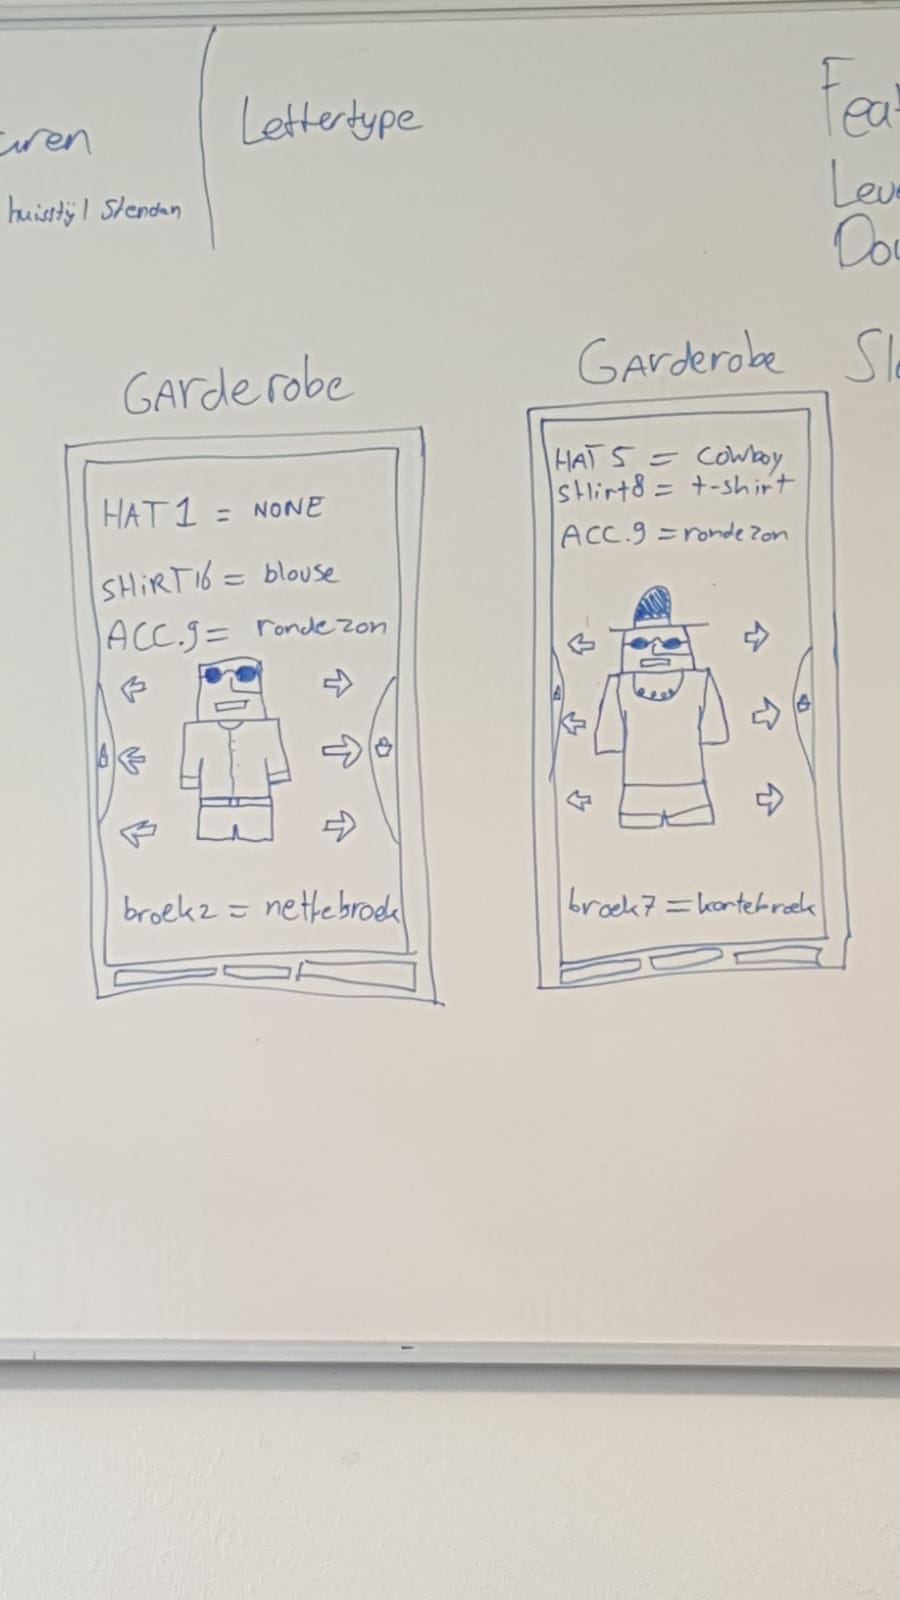 Lettertype
huisstijl Stendan
Garderobe
HAT 1 = NONE
SHIRT 16 = blouse
ACC.9 = ronde zon
broek2 = nettebroek
Garderobe
HAT 5 = Cowboy
SHirt8 = t-shirt
ACC.9 = ronde zon
broek7 = kortebroek